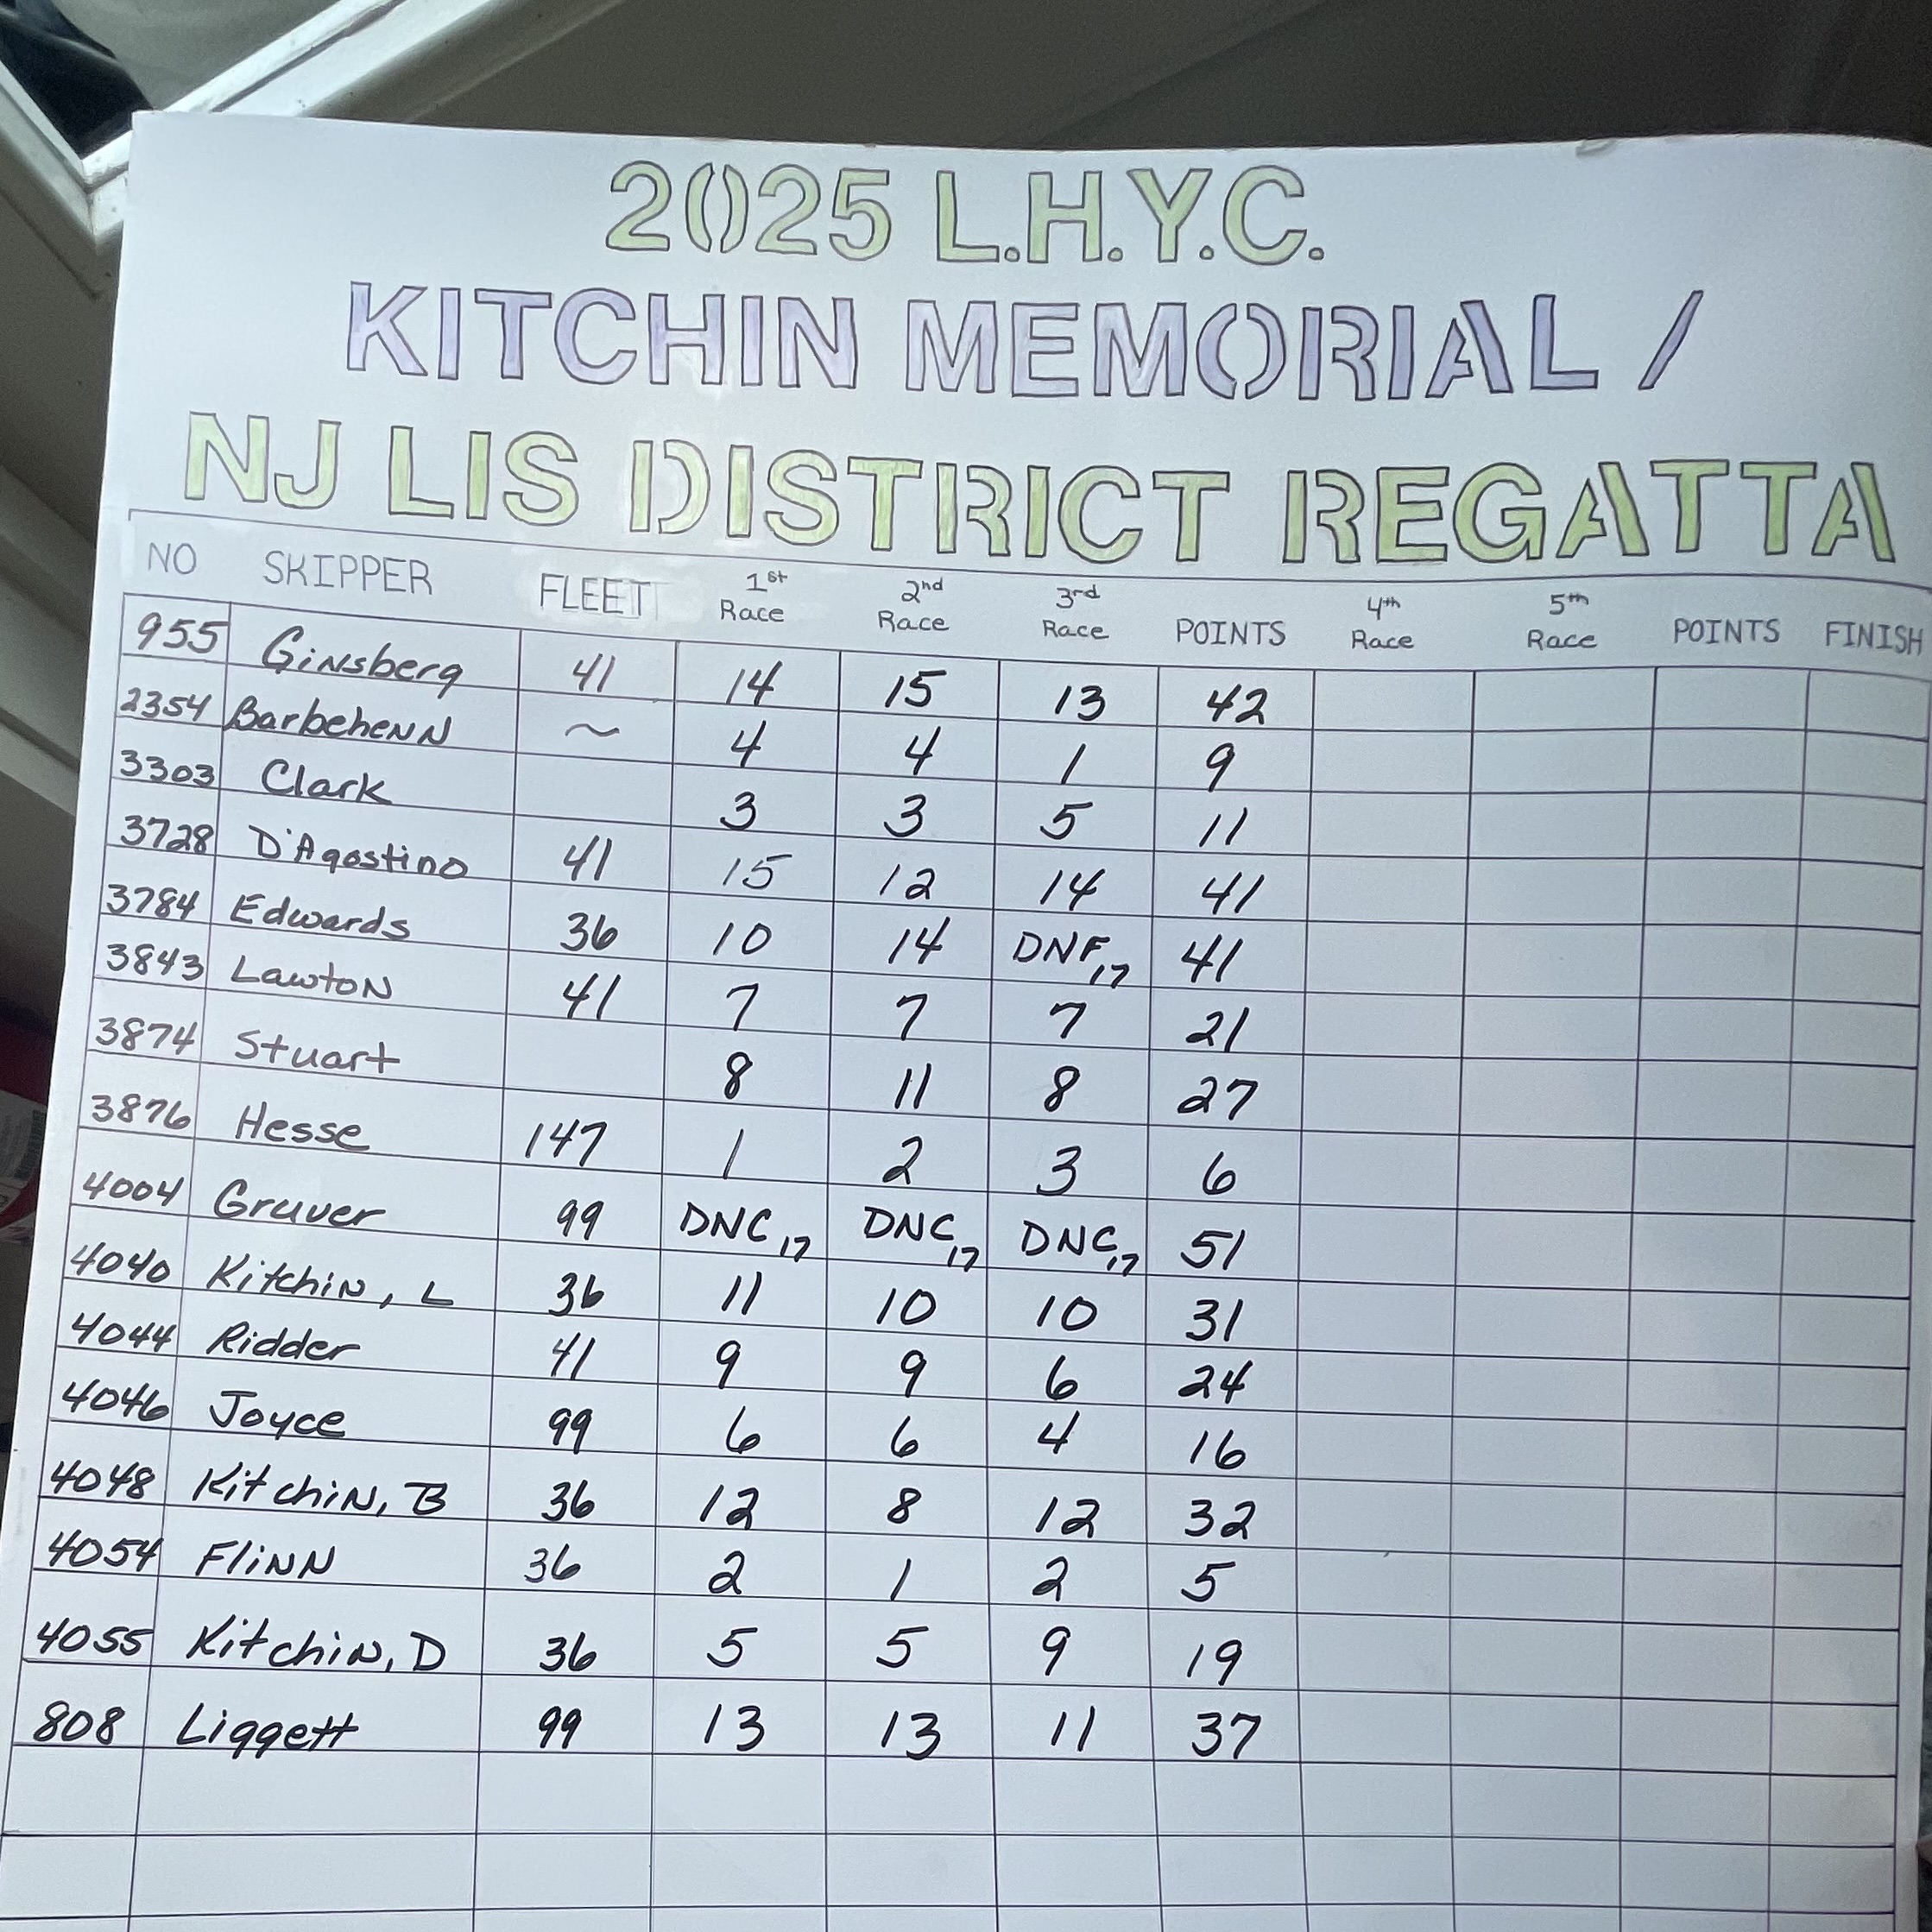 2025 L.H.Y.C.
KITCHIN MEMORIAL /
NJ LIS DISTRICT REGATTA
NO SKIPPER FLEET 1st Race 2nd Race 3rd Race POINTS 4th Race 5th Race POINTS FINISH
955 Ginsberg 41 14 15 13 42
2354 Barbehenn ~ 4 4 1 9
3303 Clark 3 3 5 11
3728 D'Agostino 41 15 12 14 41
3784 Edwards 36 10 14 DNF,17 41
3843 Lawton 41 7 7 7 21
3874 Stuart 8 11 8 27
3876 Hesse 147 1 2 3 6
4004 Gruver 99 DNC,17 DNC,17 DNC,17 51
4040 Kitchin, L 36 11 10 10 31
4044 Ridder 41 9 9 6 24
4046 Joyce 99 6 6 4 16
4048 Kitchin, B 36 12 8 12 32
4054 Flinn 36 2 1 2 5
4055 Kitchin, D 36 5 5 9 19
808 Liggett 99 13 13 11 37